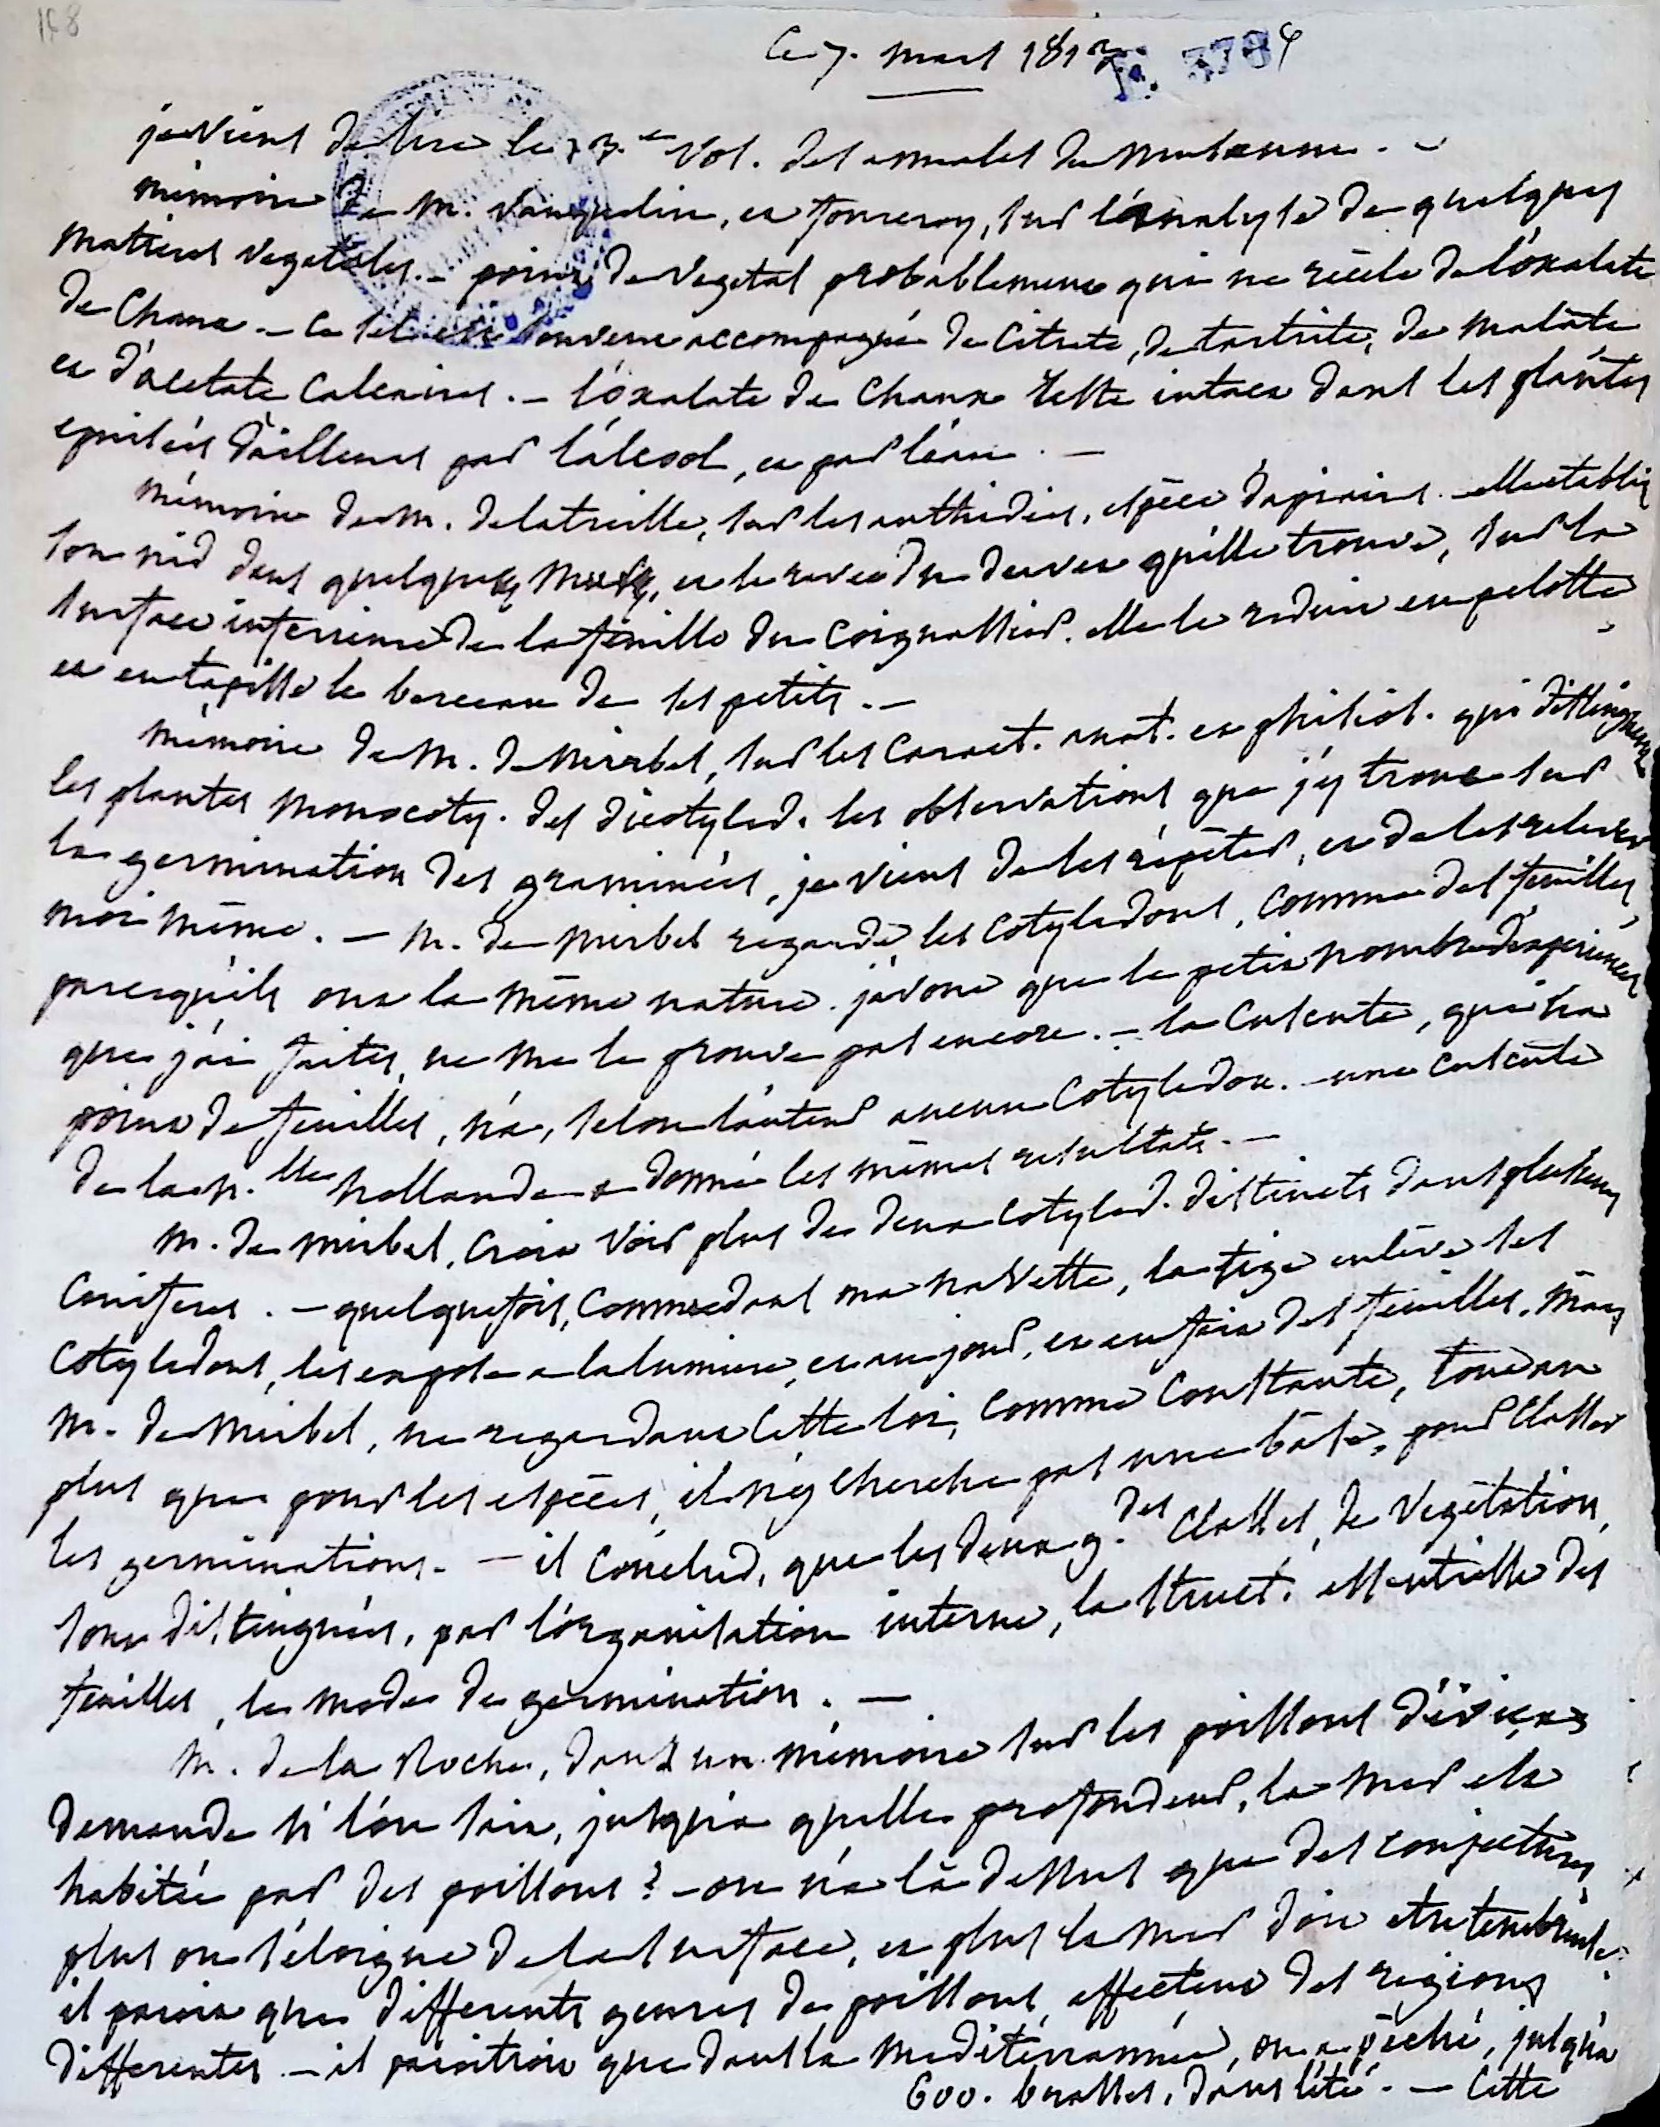 168
Ce 7. mars 1812.
je viens de lire le 13.e vol. des annales du museum. -
mémoire de M. Vauquelin, et fourcroy, sur l'analyse de quelques
matieres vegetales. - point de vegetal probablement qui ne récele de l'oxalate
de Chaux - ce sel est souvent accompagné de Citrate, de tartrite, de malate
et d'acetate Calcaires. - l'oxalate de Chaux reste intact dans les plantes
epuisées d'ailleurs par l'alcool, et par l'eau. -
mémoire de M. de latreille, sur les anthidies, espèce d'apiaires - elle etablit
son nid dans quelques, et le revet du duvet qu'elle trouve, sur la
surface inferieure de la feuille du Coignassier. elle le reduit en pelotte
et en tapisse le berceau de ses petits. -
mémoire de M. de Mirbel, sur les Caract. anat. et phisiol. qui distinguent
les plantes monocoty. des dicotyled. les observations que j'y trouve sur
la germination des graminées, je viens de les répéter, et de les relever
moi même. - M. de Mirbel regarde les Cotyledons, comme des feuilles,
parcequ'ils ont la même nature. j'avoue que le petit nombre d'experiences
que j'ai faites, ne me le prouve pas encore. - la Cuscute, qui n'a
point de feuilles, n'a, selon l'auteur aucun Cotyledon. - une cuscute
de la n.lle hollande a donné les mêmes resultats. -
M. de mirbel, Croit voir plus de deux Cotyled. distincts dans plusieurs
Coniferes. - quelquefois, comme dans ma navette, la tige enlève ses
Cotyledons, les expose a la lumiere, et au jour, et en fait des feuilles, mais
M. de Mirbel, ne regardant cette loi, comme constante, tout au
plus que pour les espèces, il n'y cherche pas une base, pour Classer
les germinations. - il conclud, que les deux g.des Classes, de vegétation,
sont distinguées, par l'organisation interne, la struct. essentielle des
feuilles, le mode de germination. -
M. de la Roche, dans un mémoire sur les poissons d'iviça
demande si l'on sait, jusqu'a quelle profondeur, la mer est
habitée par des poissons? - on n'a là dessus que des conjectures
plus on s'éloigne de la surface, et plus la mer doit etre tenebreuse.
il paroit que differents genres de poissons, affectent des regions
differentes - il paroitroit que dans la mediterrannée, on a pêché, jusqu'a
600. brasses, dans l'été. - Cette